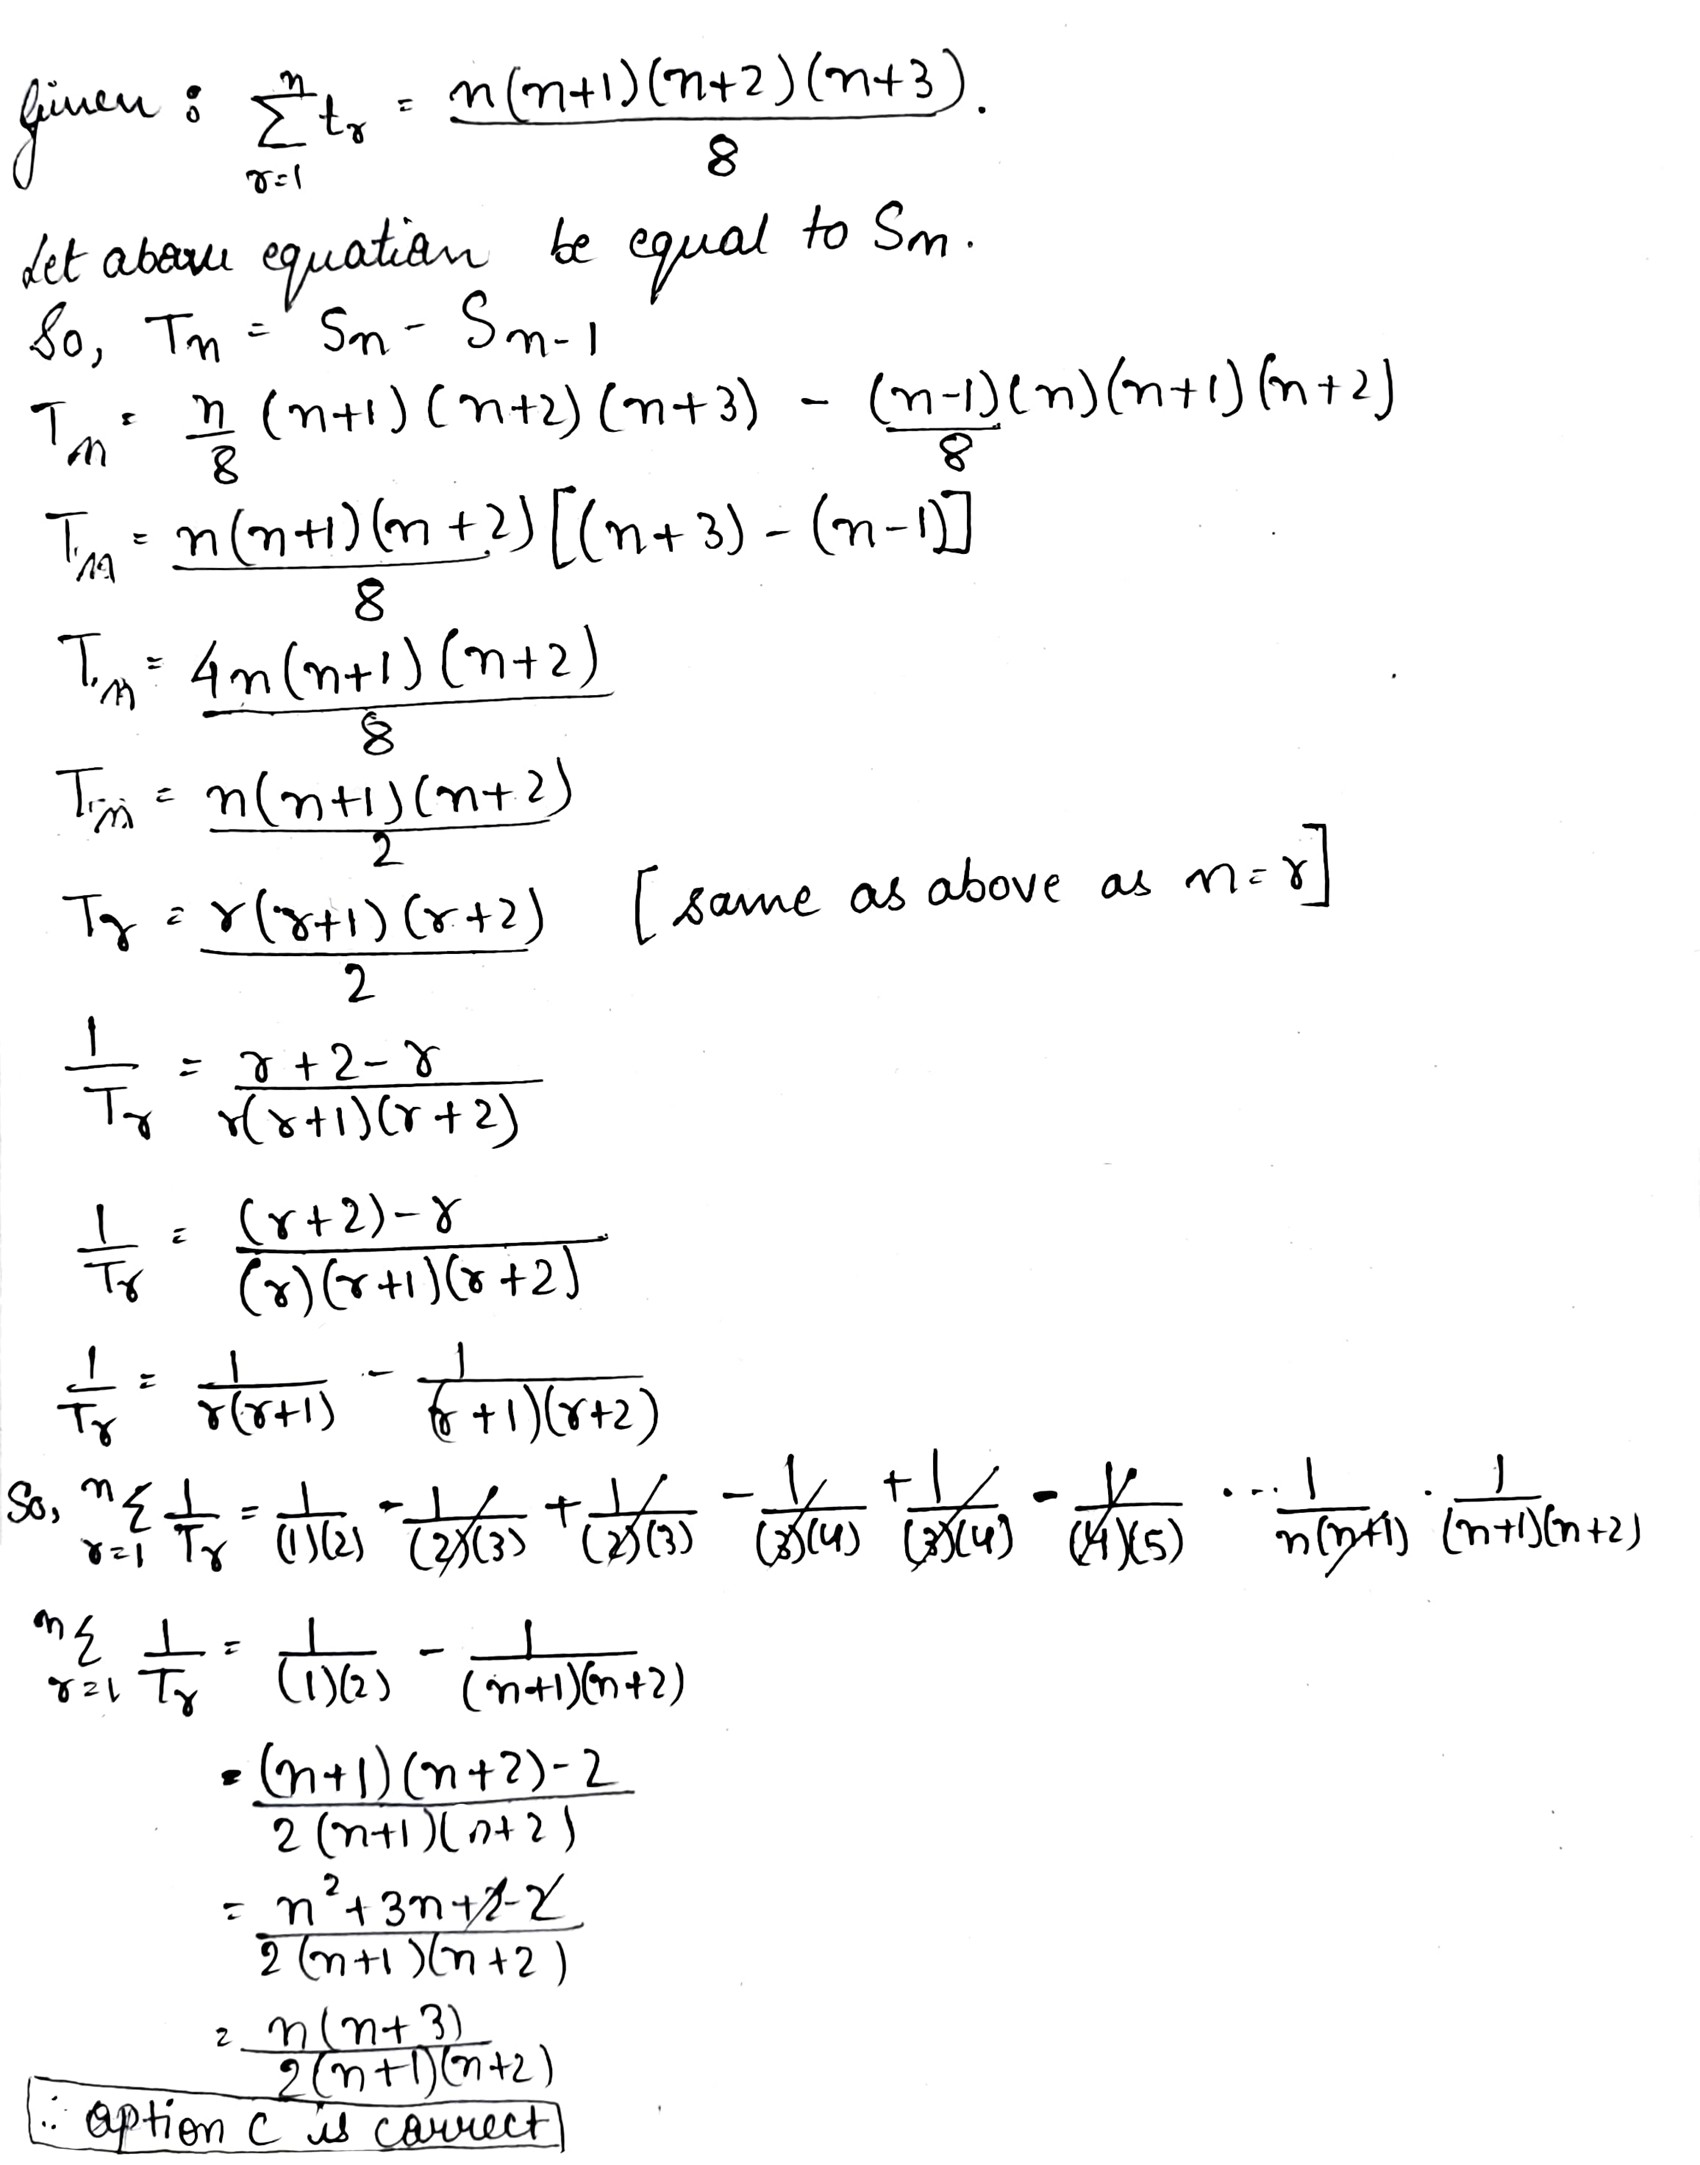 Given : ∑_{r=1}^{n} t_r = n(n+1)(n+2)(n+3)/8 .
Let above equation be equal to Sn.
So, Tn = Sn - Sn-1
Tn = n/8 (n+1)(n+2)(n+3) - (n-1)(n)(n+1)(n+2)/8
Tn = n(n+1)(n+2)/8 [(n+3)-(n-1)]
Tn = 4n(n+1)(n+2)/8
Tn = n(n+1)(n+2)/2
Tr = r(r+1)(r+2)/2 [same as above as n=r]
1/Tr = r+2-r/r(r+1)(r+2)
1/Tr = (r+2)-r/(r)(r+1)(r+2)
1/Tr = 1/r(r+1) - 1/(r+1)(r+2)
So, ∑_{r=1}^{n} 1/Tr = 1/(1)(2) - 1/(2)(3) + 1/(2)(3) - 1/(3)(4) + 1/(3)(4) - 1/(4)(5) ... 1/n(n+1) . 1/(n+1)(n+2)
∑_{r=1}^{n} 1/Tr = 1/(1)(2) - 1/(n+1)(n+2)
= (n+1)(n+2)-2/2(n+1)(n+2)
= n²+3n+2-2/2(n+1)(n+2)
= n(n+3)/2(n+1)(n+2)
∴ option C is correct